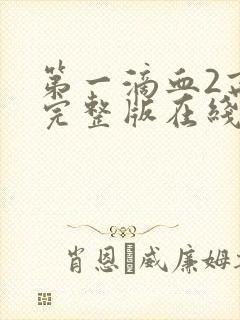 第一滴血2
完整版在线
肖恩·威廉姆